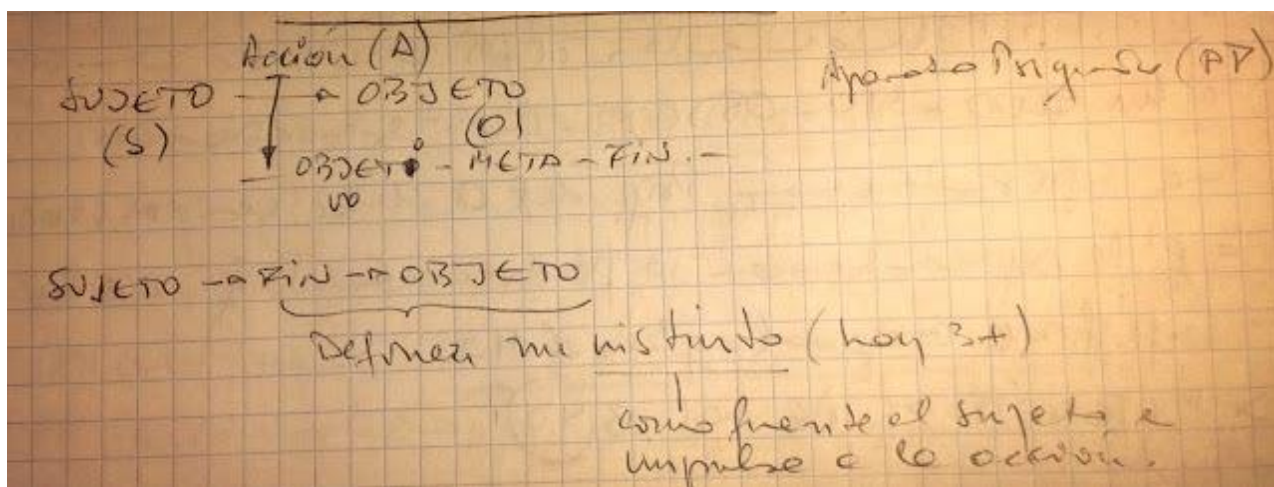 Acción (A)
SUJETO → OBJETO
(S) (O)
Aparato Psíquico (AP)
OBJETIVO - META - FIN.-
SUJETO → FIN → OBJETO
Definen un instinto (hay 3+)
como fuente el sujeto e
impulso a la acción.